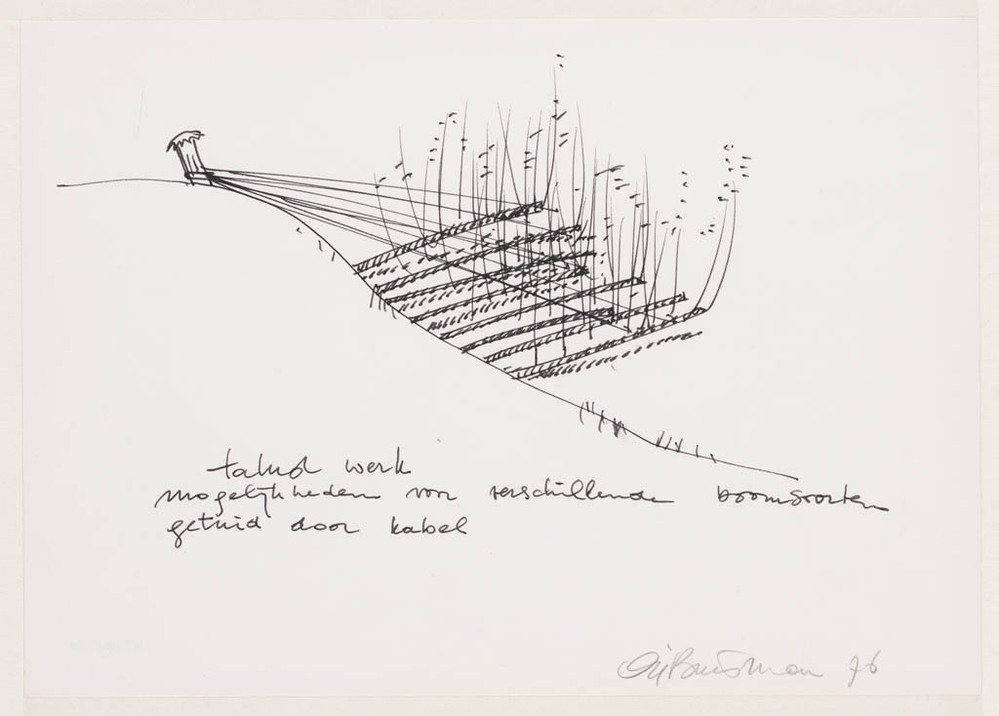 talud werk
mogelijkheden voor verschillende boomsoorten
getuid door kabel
76